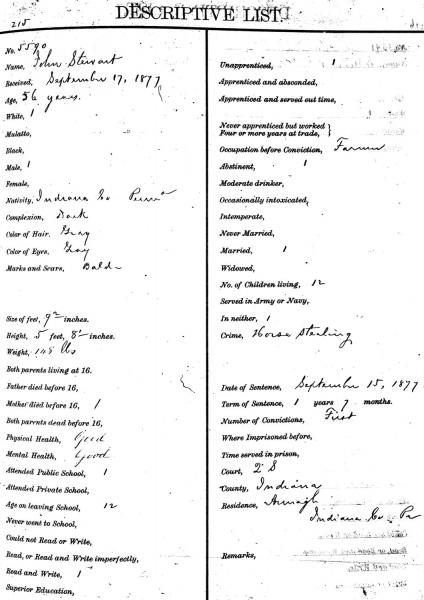 DESCRIPTIVE LIST
215
No. 5590
Name, John Stewart
Received, September 17, 1877
Age, 56 years.
White, 1
Mulatto,
Black,
Male, 1
Female,
Nativity, Indiana Co Penna
Complexion, Dark
Color of Hair, Gray
Color of Eyes, Gray
Marks and Scars, Bald
Size of feet, 9 2/ inches.
Height, 5 feet, 8 inches.
Weight, 148 lbs
Both parents living at 16.
Father died before 16,
Mother died before 16, 1
Both parents dead before 16,
Physical Health, Good
Mental Health, Good
Attended Public School, 1
Attended Private School,
Age on leaving School, 12
Never went to School,
Could not Read or Write,
Read, or Read and Write imperfectly,
Read and Write, 1
Superior Education,
Unapprenticed, 1
Apprenticed and absconded,
Apprenticed and served out time,
Never apprenticed but worked
Four or more years at trade,
Occupation before Conviction, Farmer
Abstinent, 1
Moderate drinker,
Occasionally intoxicated,
Intemperate,
Never Married,
Married, 1
Widowed,
No. of Children living, 12
Served in Army or Navy,
In neither, 1
Crime, Horse Stealing
Date of Sentence, September 15, 1877
Term of Sentence, 1 years 7 months.
Number of Convictions, First
Where Imprisoned before,
Time served in prison,
Court, 2 S
County, Indiana
Residence, Armagh
Indiana Co Pa
Remarks,